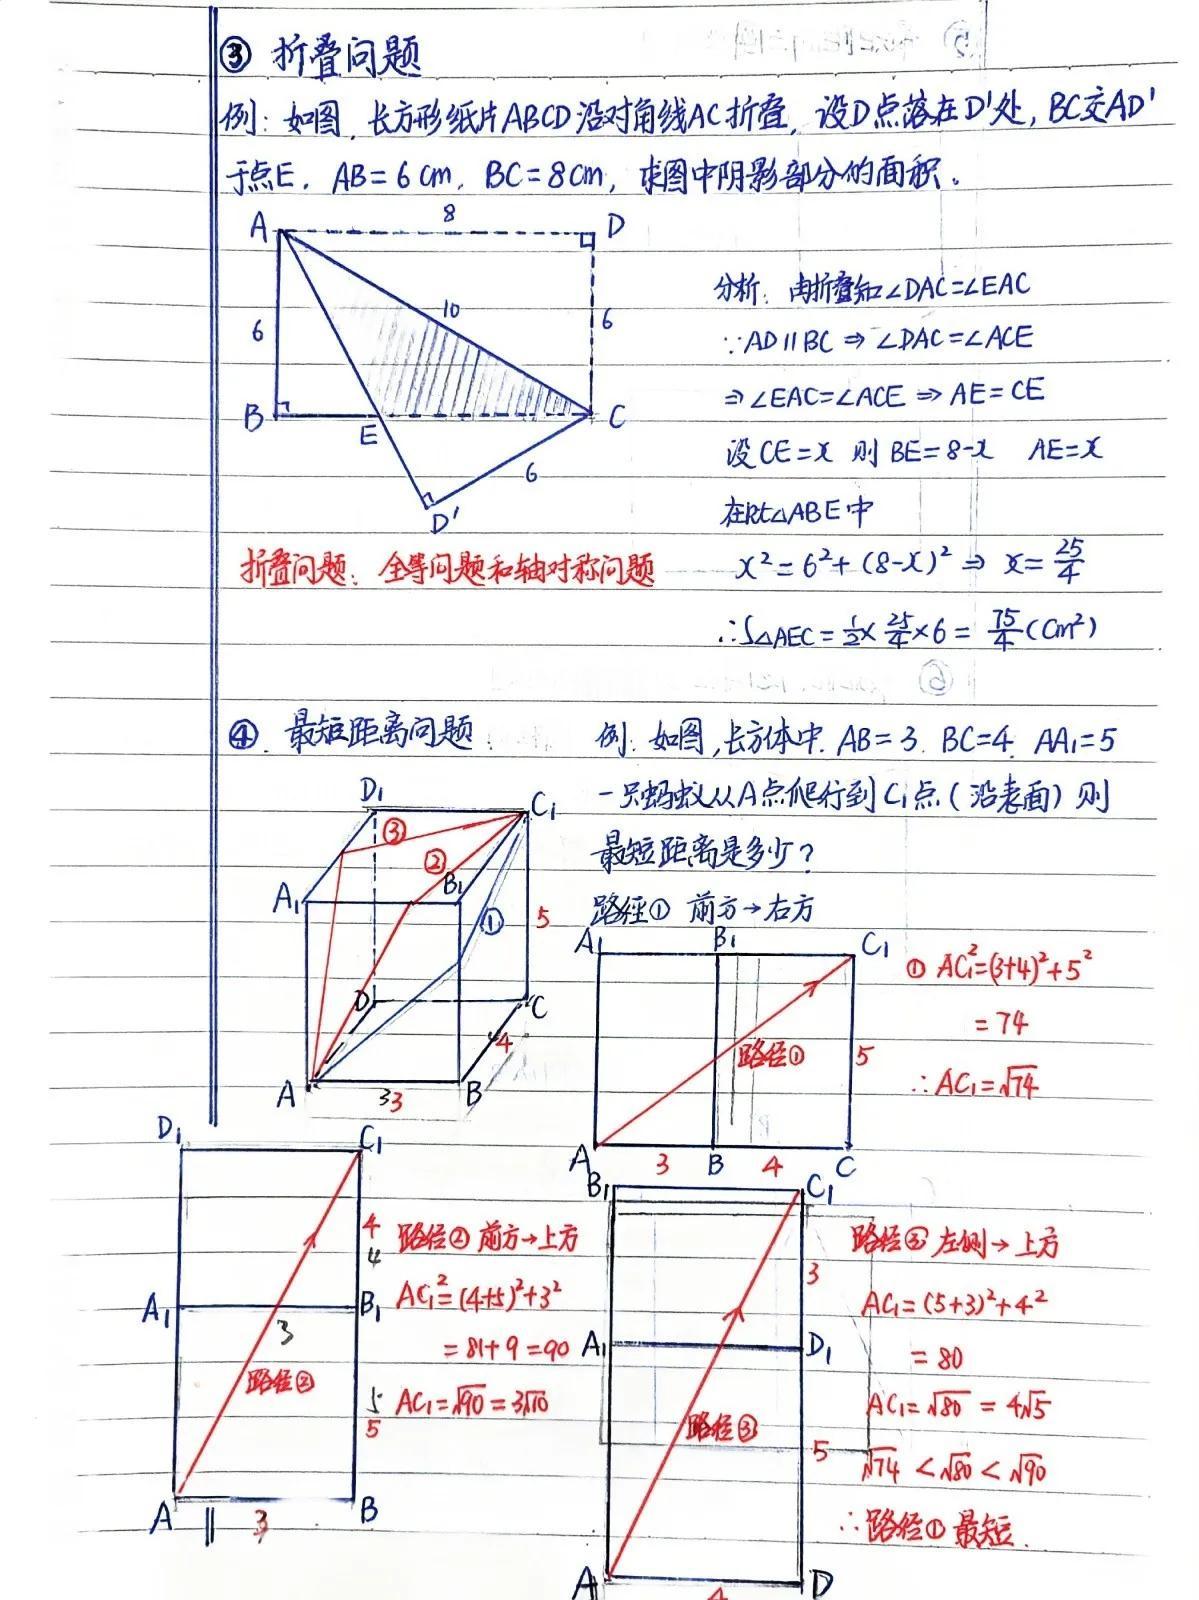 ③ 折叠问题
例：如图，长方形纸片ABCD沿对角线AC折叠，设D点落在D'处，BC交AD'
于点E．AB=6cm．BC=8cm，求图中阴影部分的面积。
A 8 D
6 10 6
B E C
6
D'
分析：由折叠知∠DAC=∠EAC
∵AD∥BC⇒∠DAC=∠ACE
⇒∠EAC=∠ACE⇒AE=CE
设CE=x 则BE=8-x AE=x
在Rt△ABE中
x²=6²+(8-x)²⇒x=25/4
∴S△AEC=1/2×25/4×6=75/4(cm²)
折叠问题：全等问题和轴对称问题
④．最短距离问题：
例：如图，长方体中．AB=3．BC=4．AA₁=5
一只蚂蚁从A点爬行到C₁点（沿表面）则
最短距离是多少？
D₁ C₁
③
②
A₁ B₁
① 5
D C
4
A 3 3 B
路径① 前方→右方
A₁ B₁ C₁
路径① 5
A 3 B 4 C
① AC₁²=(3+4)²+5²
=74
∴AC₁=√74
D₁ C₁
4
4
A₁ 3 B₁
路径②
5
5
A 3 B
路径② 前方→上方
AC₁²=(4+5)²+3²
=81+9=90
AC₁=√90=3√10
B₁ C₁
3
A₁ D₁
路径③ 5
A 4 D
路径③ 左侧→上方
AC₁=(5+3)²+4²
=80
AC₁=√80=4√5
√74<√80<√90
∴路径①最短．